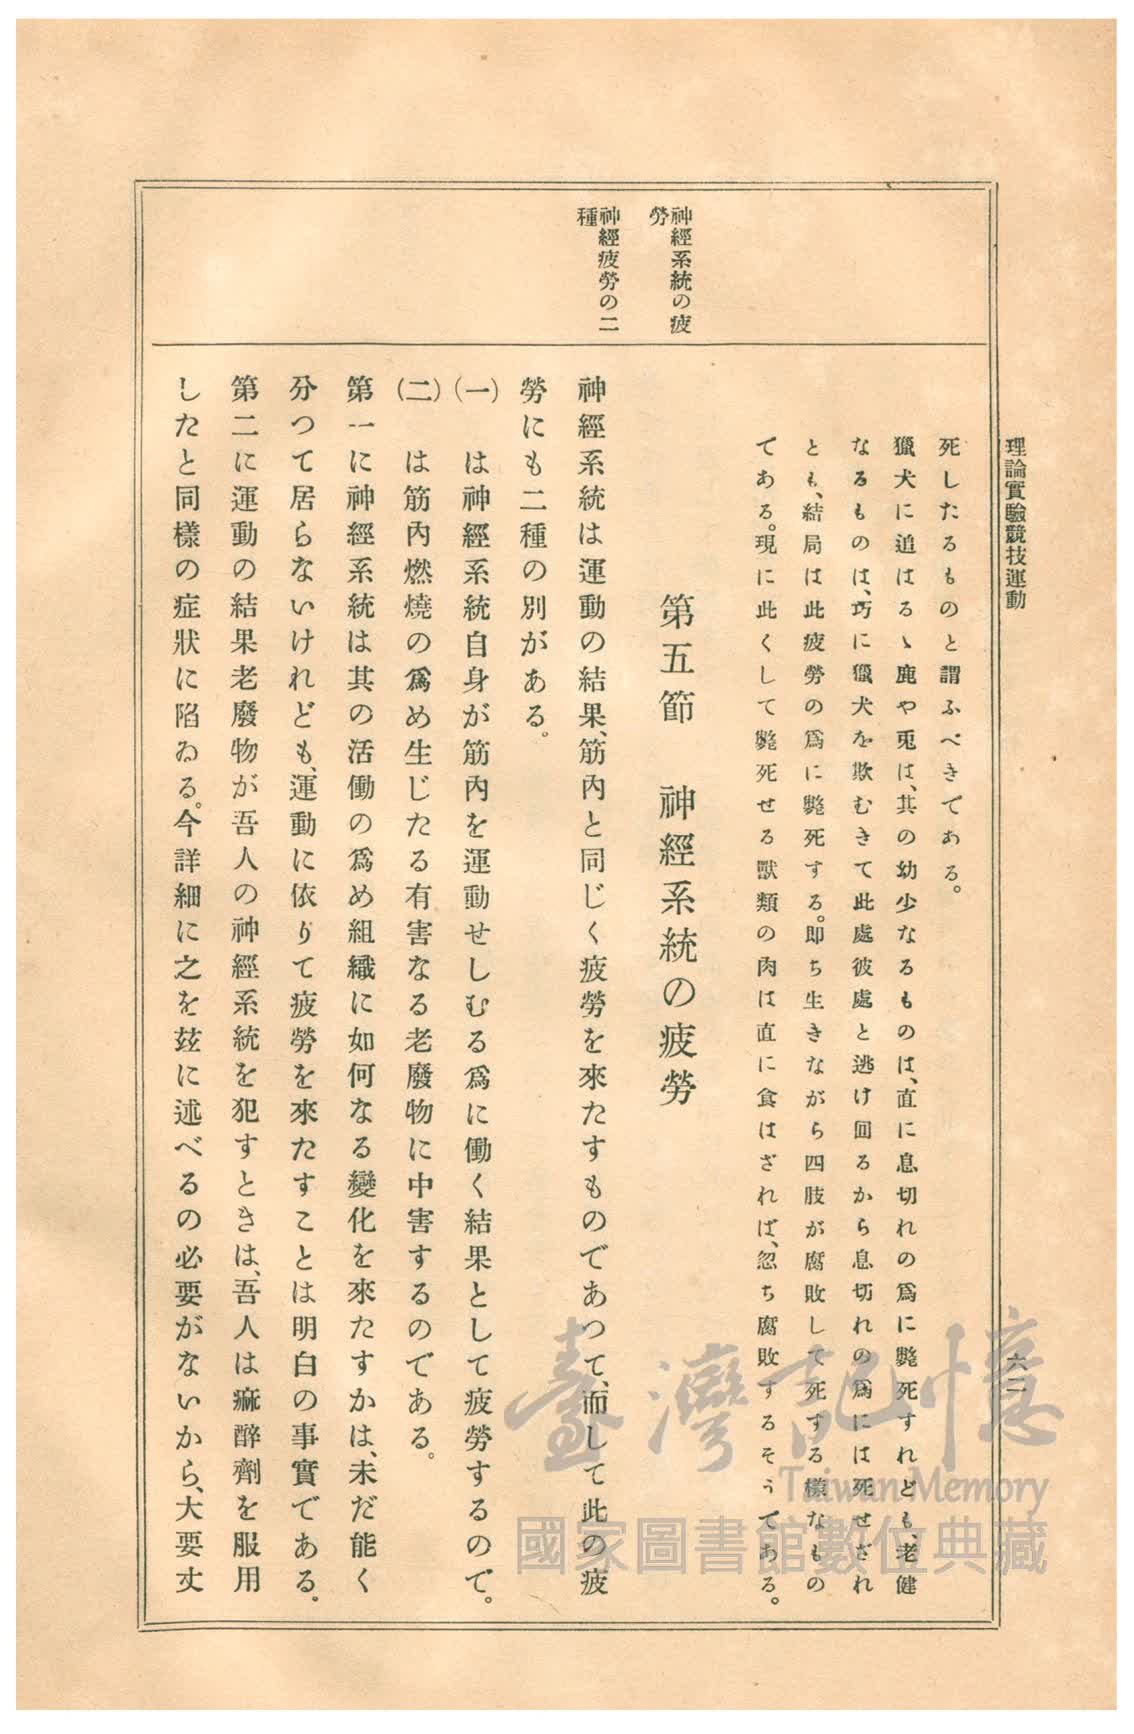 理論實驗競技運動
六二
死したるものと謂ふべきである。
獵犬に追はるゝ鹿や兎は、其の幼少なるものは、直に息切れの爲に斃死すれども、老健
なるものは、巧に獵犬を欺むきて此處彼處と逃げ回るから息切れの爲には死せざれ
とも、結局は此疲勞の爲に斃死する。即ち生きながら四肢が腐敗して死する樣なもの
である。現に此くして斃死せる獸類の肉は直に食はざれば、忽ち腐敗するそうである。
神經系統の疲
勞
第五節 神經系統の疲勞
神經疲勞の二
種
神經系統は運動の結果、筋內と同じく疲勞を來たすものであつて、而して此の疲
勞にも二種の別がある。
(一) は神經系統自身が筋內を運動せしむる爲に働く結果として疲勞するので。
(二) は筋內燃燒の爲め生じたる有害なる老廢物に中害するのである。
第一に神經系統は其の活働の爲め組織に如何なる變化を來たすかは、未だ能く
分つて居らないけれども、運動に依りて疲勞を來たすことは明白の事實である。
第二に運動の結果老廢物が吾人の神經系統を犯すときは、吾人は痲醉劑を服用
したと同樣の症狀に陷ゐる。今詳細に之を玆に述べるの必要がないから、大要丈
臺灣記憶
Taiwan Memory
國家圖書館數位典藏